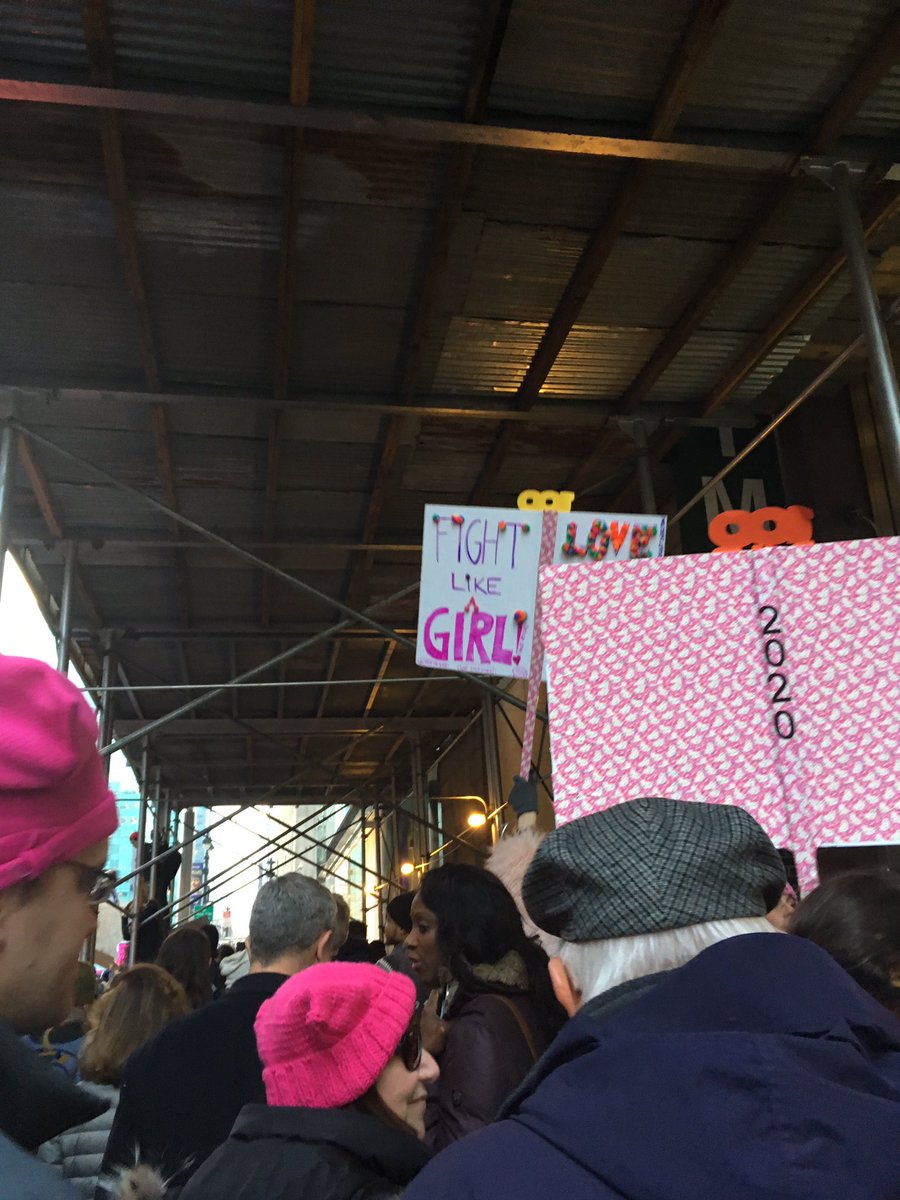 FIGHT
LIKE
^
GIRL!
LOVE
2020
M